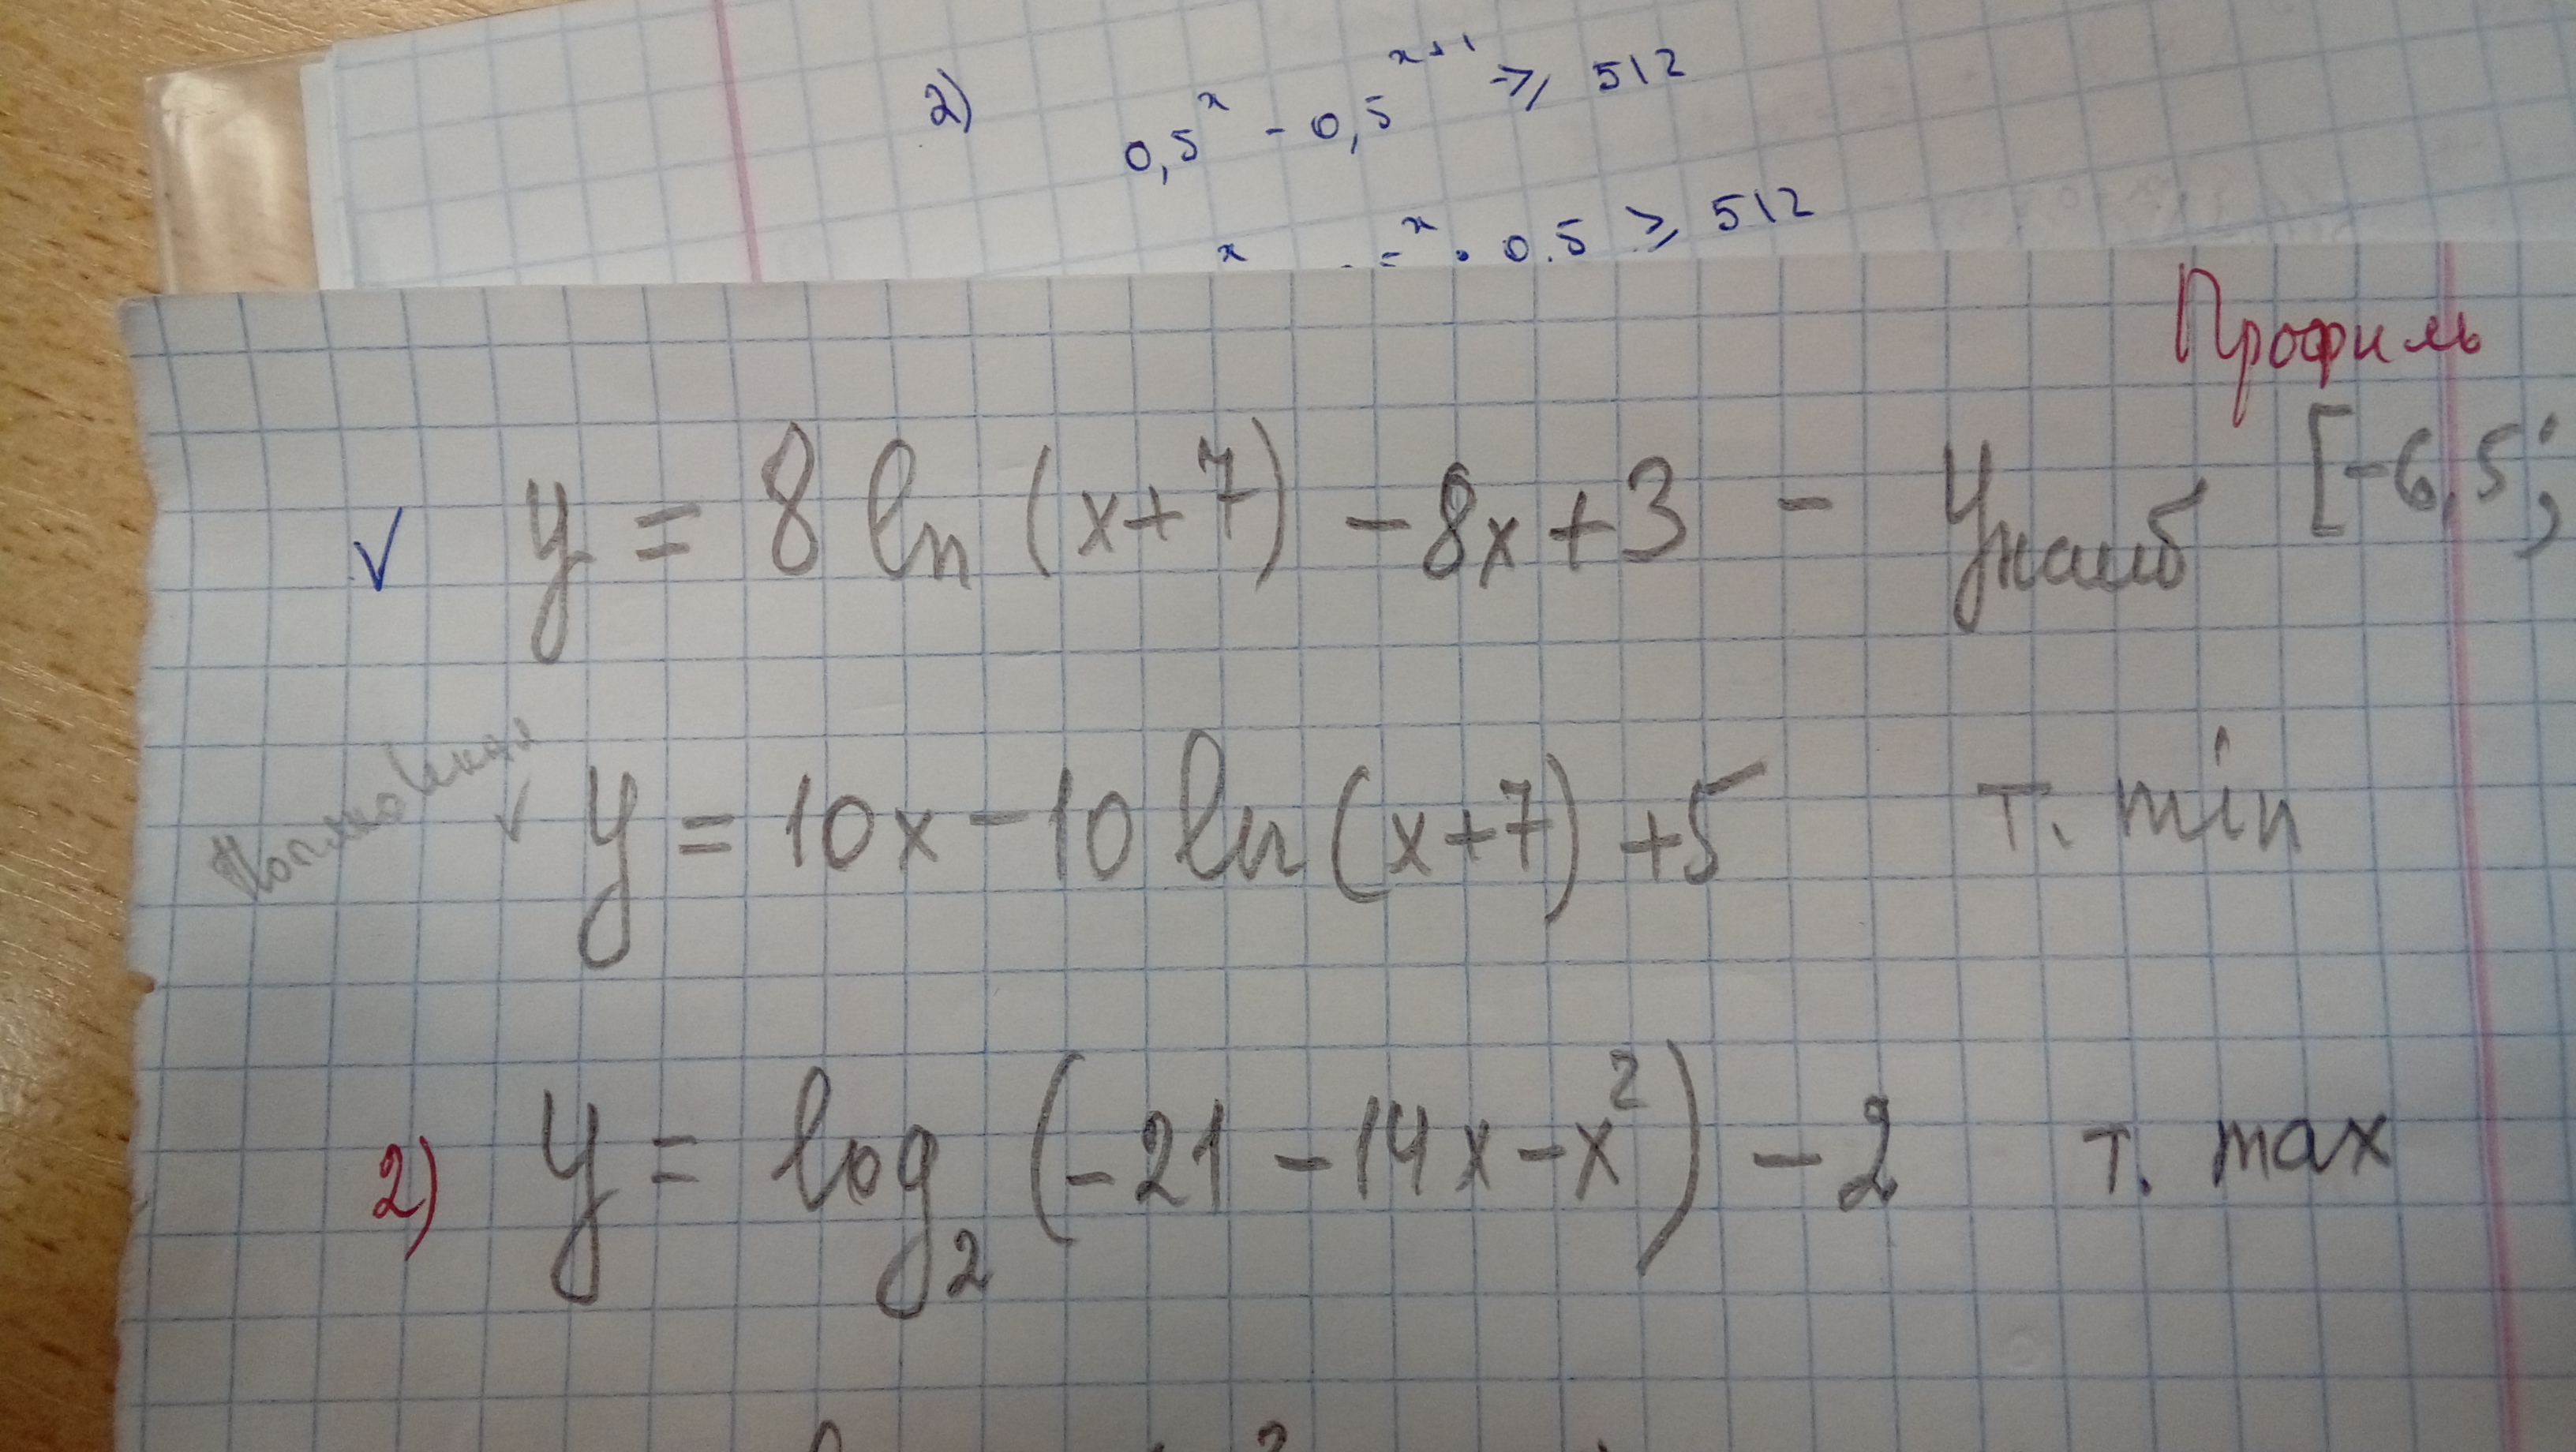 2) 0,5^x - 0,5^{x+1} ≥ 512
x · 0.5 ≥ 512
Профиль
✓ y = 8 ln (x+7) - 8x + 3 - y наиб [-6,5;
✓ y = 10x - 10 ln (x+7) + 5 т. min
2) y = log₂ (-21 - 14x - x²) - 2 т. max